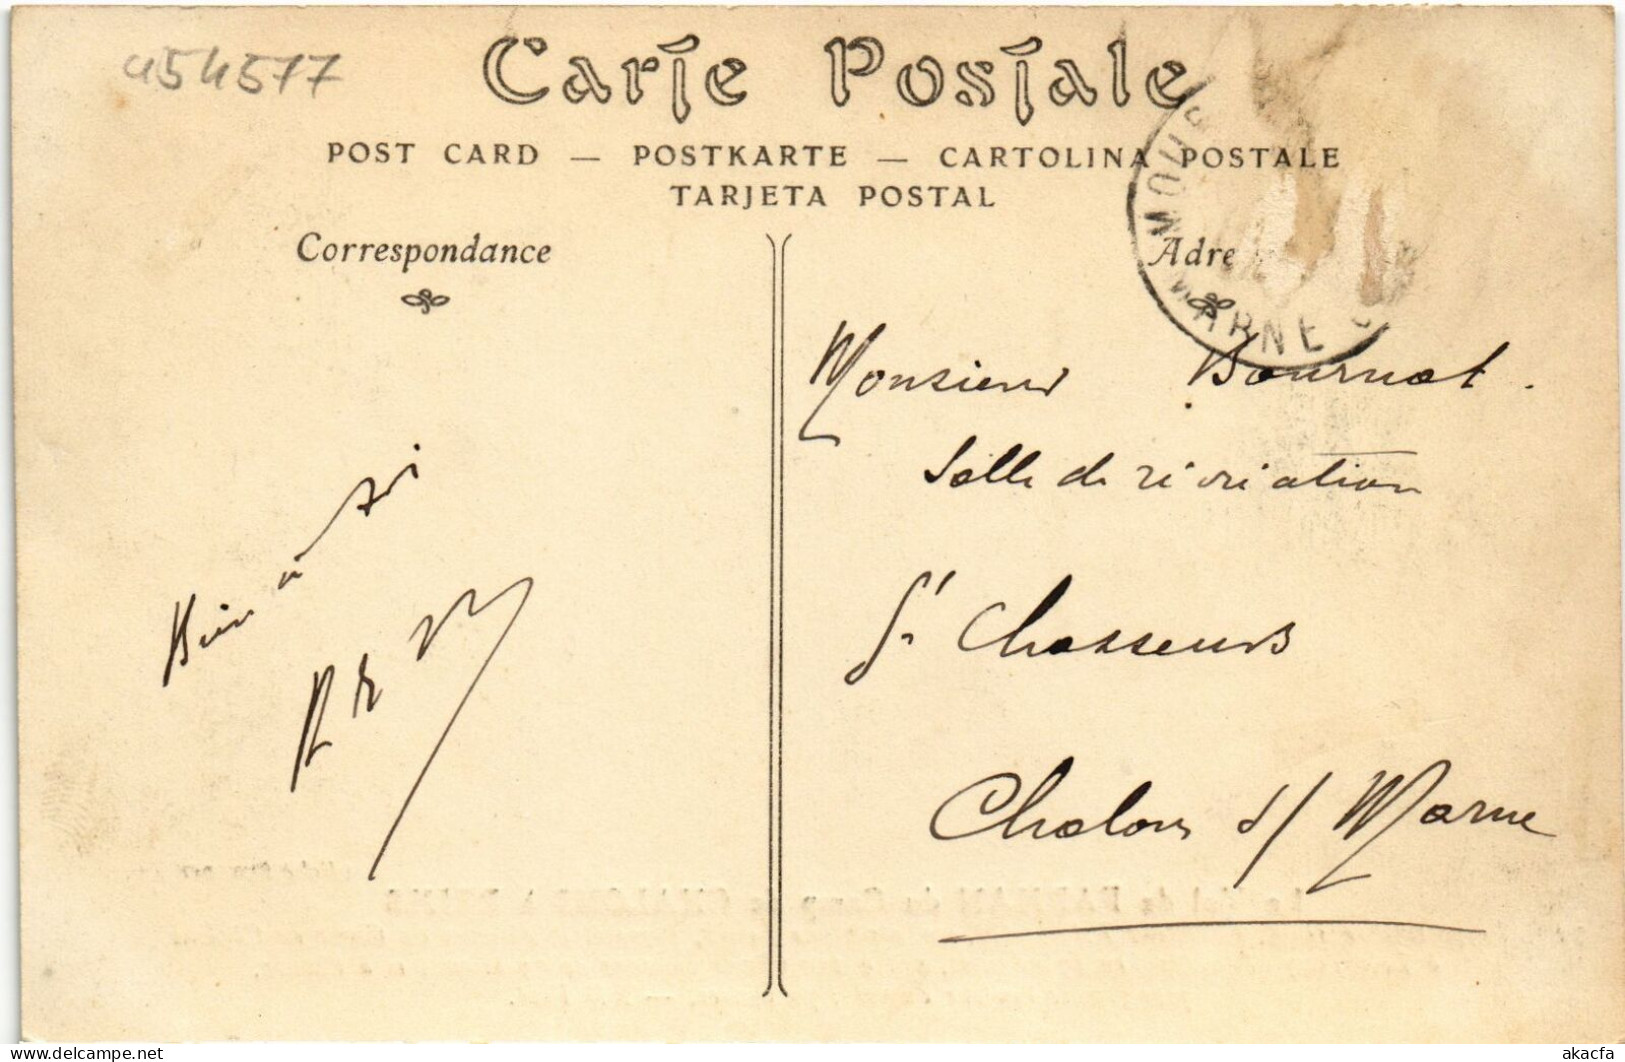 454577
Carte Postale
POST CARD — POSTKARTE — CARTOLINA POSTALE
TARJETA POSTAL
Correspondance
Adre
MOUR
MARNE
Bien à toi
Monsieur Bournot.
Salle de récréation
Chasseurs
Chalons s/ Marne
delcampe.net
akacfa